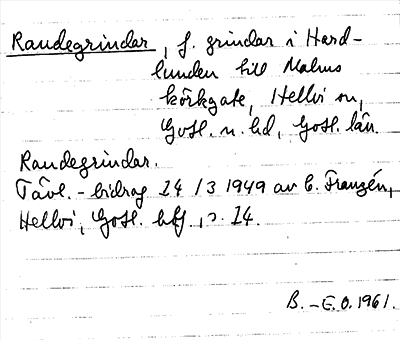 Raudegrindar, f. grindar i Hard-
lunden till Malms
körkgate, Hellvi sn,
Gotl. n. hd, Gotl. län.
Raudegrindar.
Tävl.-bidrag 14/3 1949 av C. Franzén,
Hellvi, Gotl. hbf, s. 14.
B.-E.O. 1961.